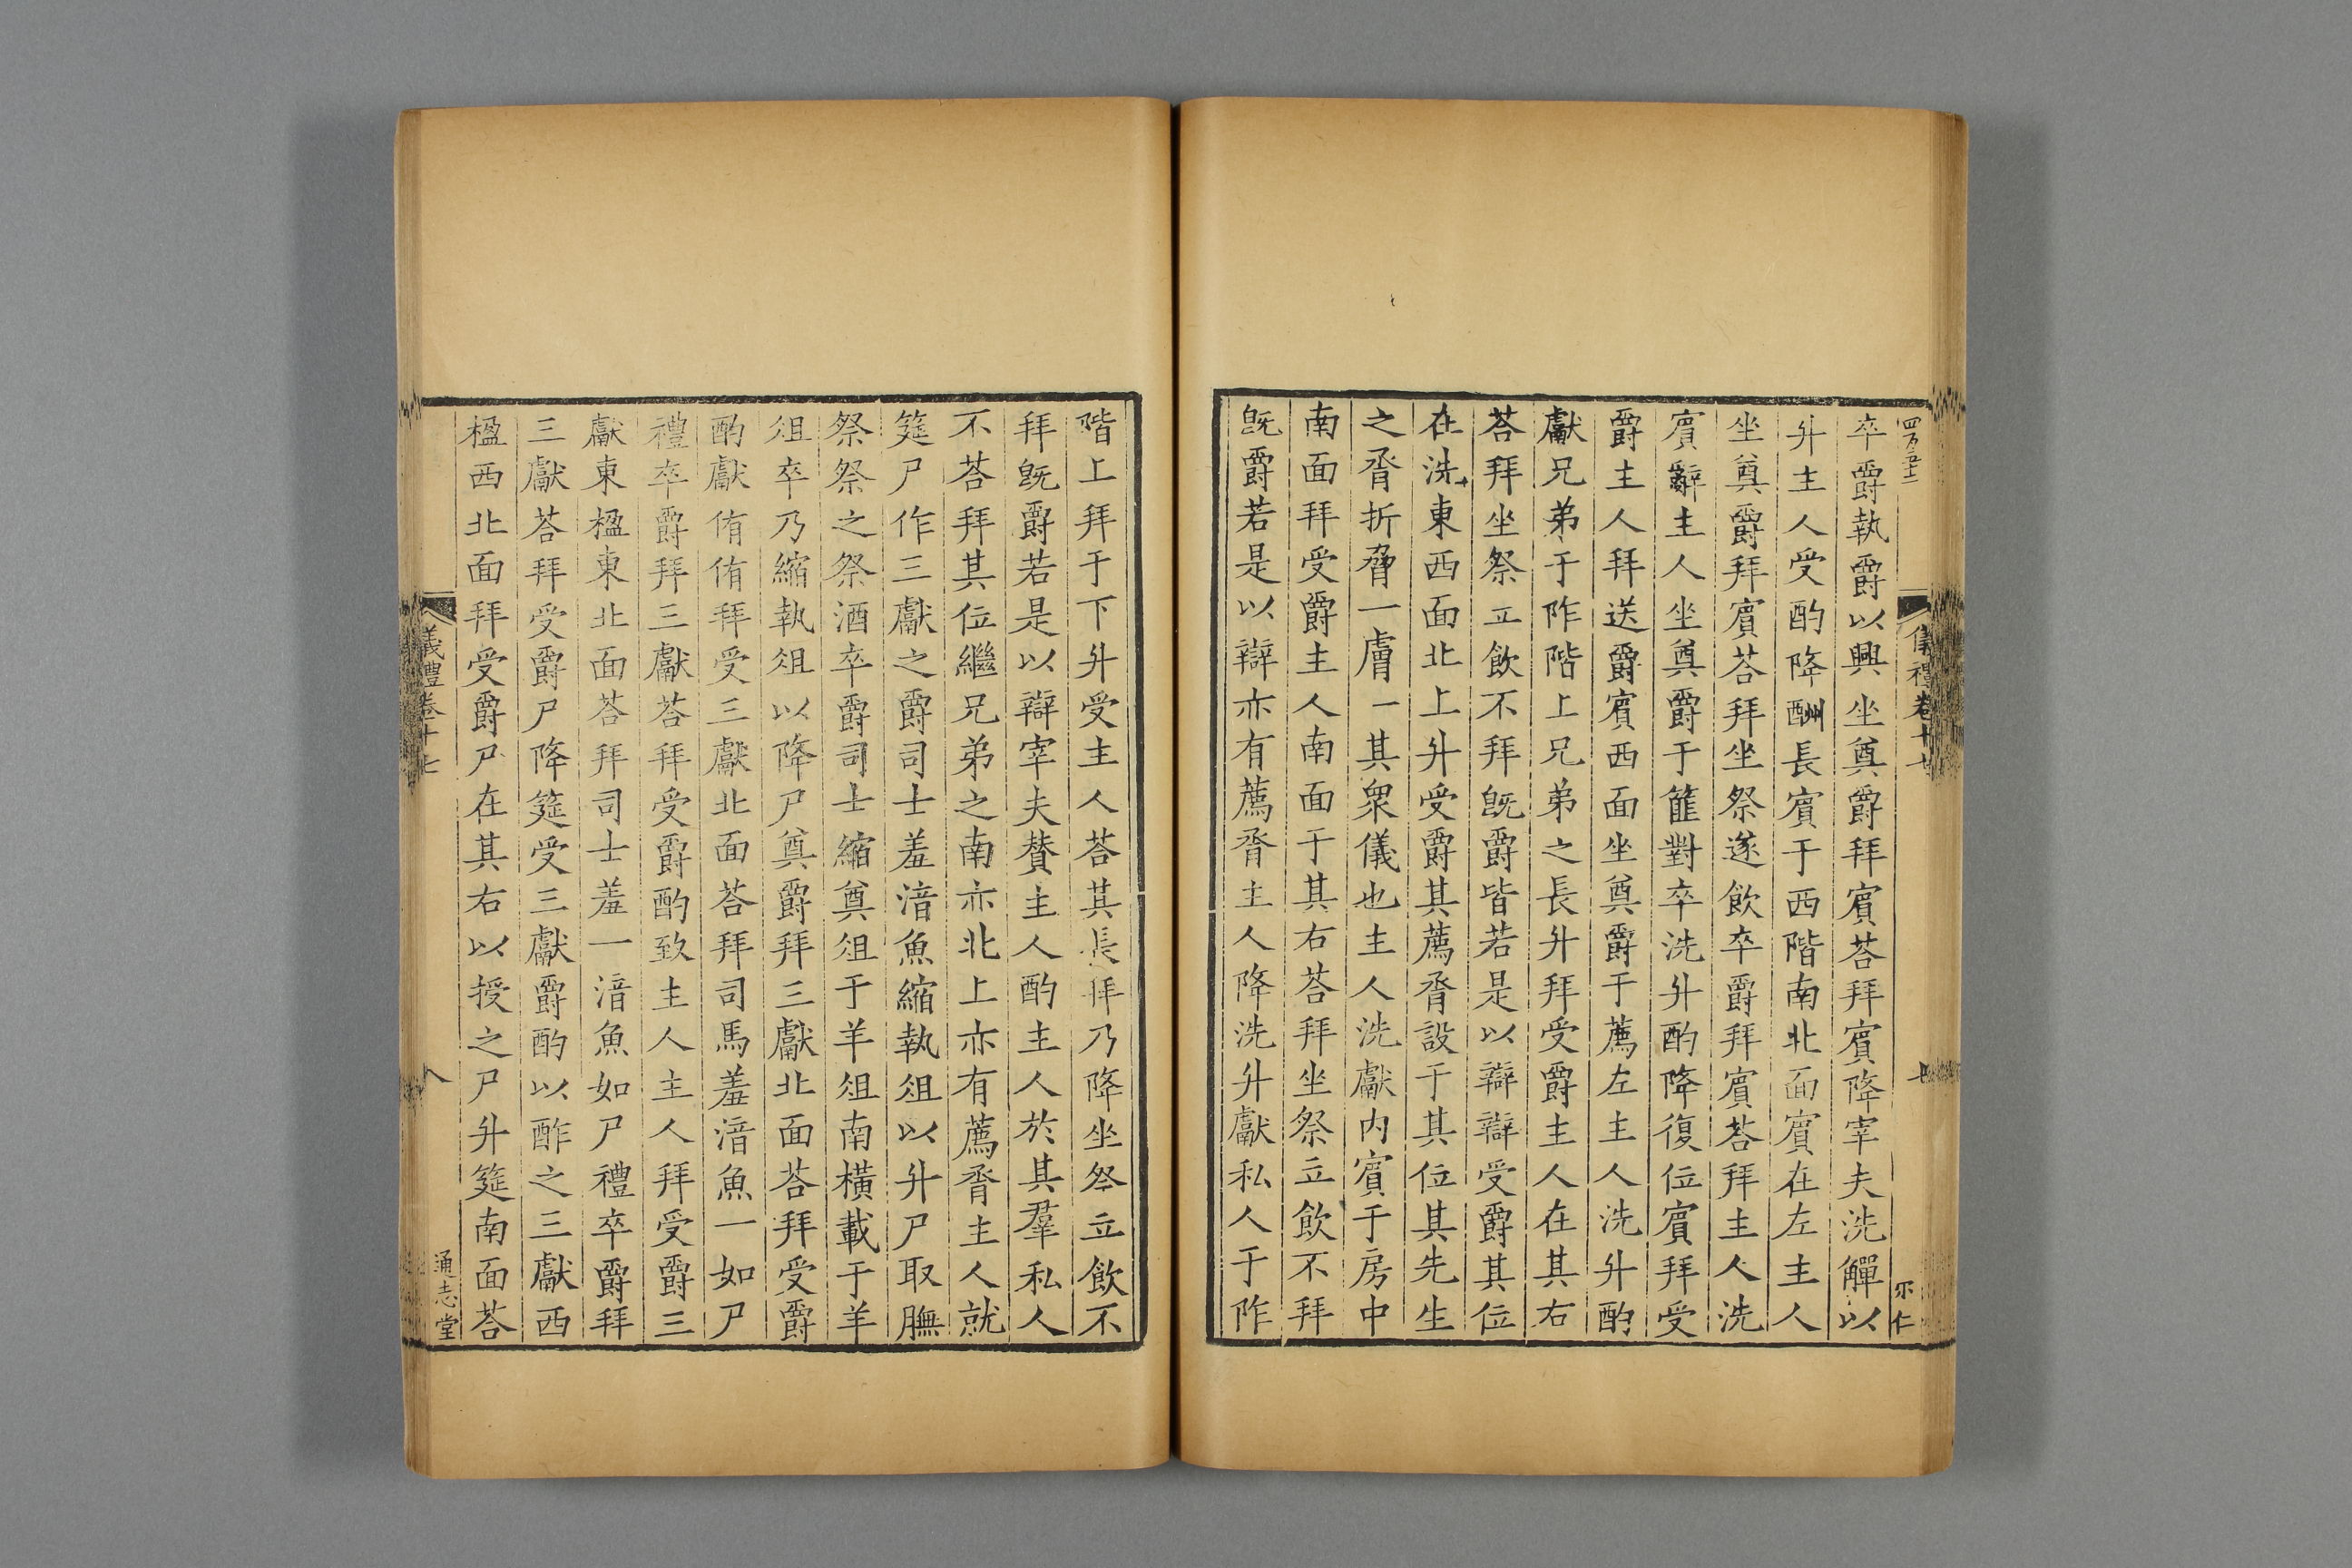 四万五十二
儀禮卷十七
七
卒爵執爵以興坐奠爵拜賔荅拜賔降宰夫洗觶以
升主人受酌降酬長賔于西階南北面賔在左主人
坐奠爵拜賔荅拜坐祭遂飲卒爵拜賔荅拜主人洗
賔辭主人坐奠爵于篚對卒洗升酌降復位賔拜受
爵主人拜送爵賔西面坐奠爵于薦左主人洗升酌
獻兄弟于阼階上兄弟之長升拜受爵主人在其右
荅拜坐祭立飲不拜旣爵皆若是以辯辯受爵其位
在洗東西面北上升受爵其薦脀設于其位其先生
之脀折脅一膚一其衆儀也主人洗獻内賔于房中
南面拜受爵主人南面于其右荅拜坐祭立飲不拜
旣爵若是以辯亦有薦脀主人降洗升獻私人于阼
階上拜于下升受主人荅其長拜乃降坐祭立飲不
拜旣爵若是以辯宰夫賛主人酌主人於其羣私人
不荅拜其位繼兄弟之南亦北上亦有薦脀主人就
筵尸作三獻之爵司士羞湆魚縮執俎以升尸取膴
祭祭之祭酒卒爵司士縮奠俎于羊俎南橫載于羊
俎卒乃縮執俎以降尸奠爵拜三獻北面荅拜受爵
酌獻侑侑拜受三獻北面荅拜司馬羞湆魚一如尸
禮卒爵拜三獻荅拜受爵酌致主人主人拜受爵三
獻東楹東北面荅拜司士羞一湆魚如尸禮卒爵拜
三獻荅拜受爵尸降筵受三獻爵酌以酢之三獻西
楹西北面拜受爵尸在其右以授之尸升筵南面荅
儀禮卷十七
八
通志堂